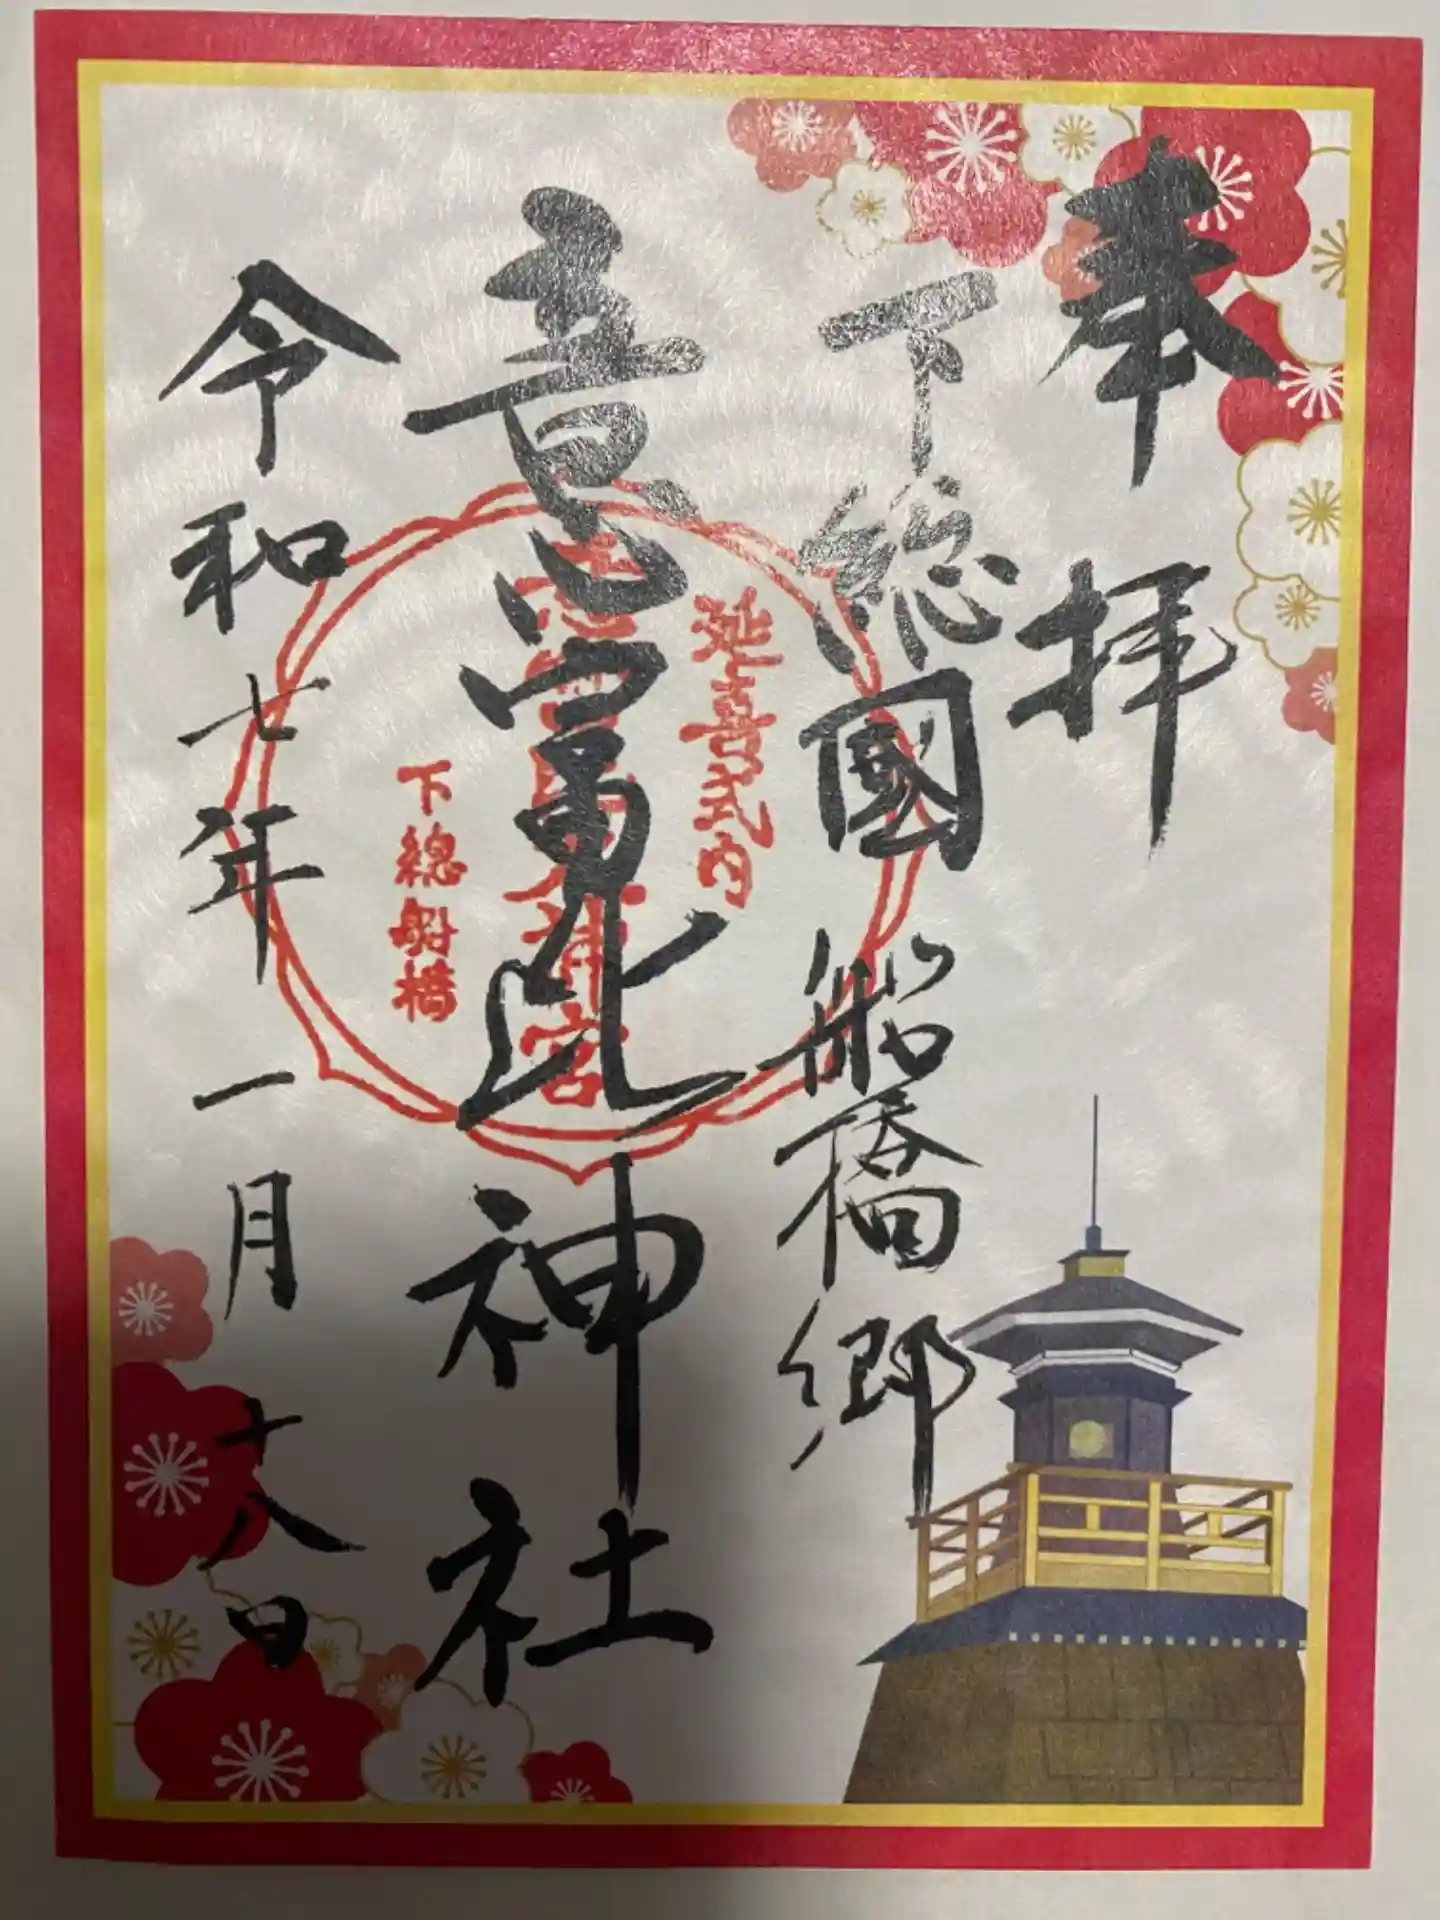 奉拝
下総國船橋郷
延喜式内
意富比神社
下總船橋
令和七年一月十八日